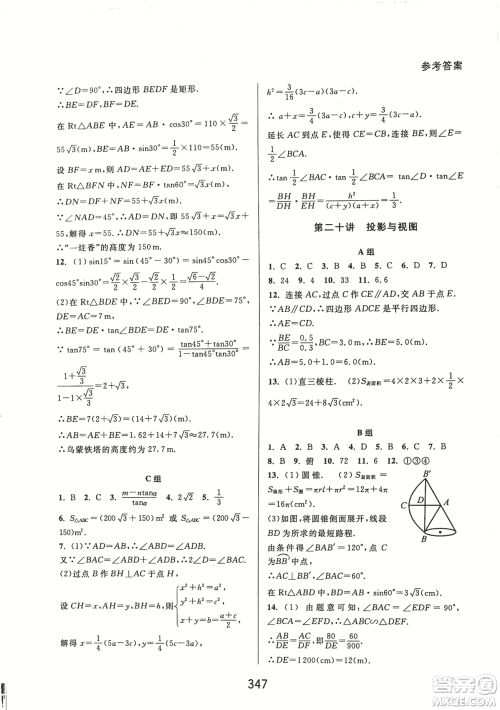 参考答案
∵∠D=90°,∴四边形 BEDF 是矩形.
∴BE=DF,BF=DE.
在 Rt△ABE 中,AE=AB·cos30°=110×√3/2
=55√3(m),BE=AB·sin30°=1/2×110=55(m).
设 BF=x m,则 AD=AE+ED=55√3+x(m).
在 Rt△BFN 中,NF=BF·tan60°=√3x(m).
∴DN=DF+NF=55+√3x(m).
∵∠NAD=45°,∴AD=DN.
∴55√3+x=√3x+55.解得 x=55.
∴DN=55+√3x≈150(m).
∴“一炷香”的高度为 150 m.
12. (1)sin15°=sin(45°-30°)=sin45°cos30°-
cos45°sin30°=√2/2×√3/2-√2/2×1/2=(√6-√2)/4.
(2)在 Rt△BDE 中,∵∠BED=90°,∠BDE=75°,
DE=AC=7 m,
∴BE=DE·tan∠BDE=DE·tan75°.
∵tan75°=tan(45°+30°)=(tan45°+tan30°)/(1-tan45°tan30°)=
(1+√3/3)/(1-1×√3/3)=2+√3,
∴BE=7(2+√3)=14+7√3(m).
∴AB=AE+BE=1.62+14+7√3≈27.7(m).
∴乌蒙铁塔的高度约为 27.7 m.
C 组
1. B 2. C 3. (m-ntanα)/tanα 4. 2√2 5. 1/3
6. S△ABC=(200√3+150)m² 或 S△ABC=(200√3-150)m²
7. (1)∵AB=AC,AU⊥BC,∴BU=UC,∠BAU=∠UAC.
∴∠BAC=2∠BAU.
(2)过点 B 作 BH⊥AC 于点 H.
设 CH=x,AH=y,则 { x²+h²=a², y²+h²=c², x+y=2c-a.
解得 x=1/4(5a-3c),y=1/4(11c-9a),
h²=3/16(3c-a)(3a-c).
∴a+x=3/4(3a-c),c+y=3/4(5c-3a).
延长 AC 到点 E,使 CE=CB,连结 BE,则∠BEC=
1/2∠BCA.
∴tan 1/2∠BAC·tan 1/2∠BCA=tan∠BDC·tan∠BEC
=BH/DH·BH/EH=h²/((a+x)(c+y))=1/3.
第二十讲 投影与视图
A 组
1. C 2. D 3. A 4. B 5. C 6. C 7. D
8. 24 9. 4 10. 33 11. 6.6
12. 连接 AC,过点 D 作 CE∥AC,交 BC 于点 E.
∵AD∥BC,∴四边形 ADEC 是平行四边形.
∵BE/BC=0.5/0.3,
∴AB≈6.0(m).
∴旗杆 AB 的高度约为 6.0 m.
13. (1)直三棱柱. (2)S表面积=4×2×3+2×1/2×
4×2√3=24+8√3.
B 组
1. A 2. B 3. D 4. D 5. D 6. B 7. C
8. B 9. 俯 10. 72 11. 6 12. ①③④
13. (1)圆锥. (2)S表面积=
S扇形+S圆=πrl+πr²=12π+4π
=16π(cm²).
(3)如图,将圆锥侧面展开,线段
BD 为所求的最短路程.
由条件得∠BAB′=120°,点 C
为BB′中点.
∴AC⊥BB′,∠BAD=60°.
在Rt△ABD中,BD=AB·sin∠BAD=6×√3/2=3√3(cm).
14. (1)由题意可知:∠BAC=∠EDF=90°,
∠BCA=∠EFD.∴△ABC∽△DEF.
∴AB/DE=AC/DF,即AB/80=900/60.
∴AB=1 200(cm).
∴学校旗杆的高度是 12 m.
347